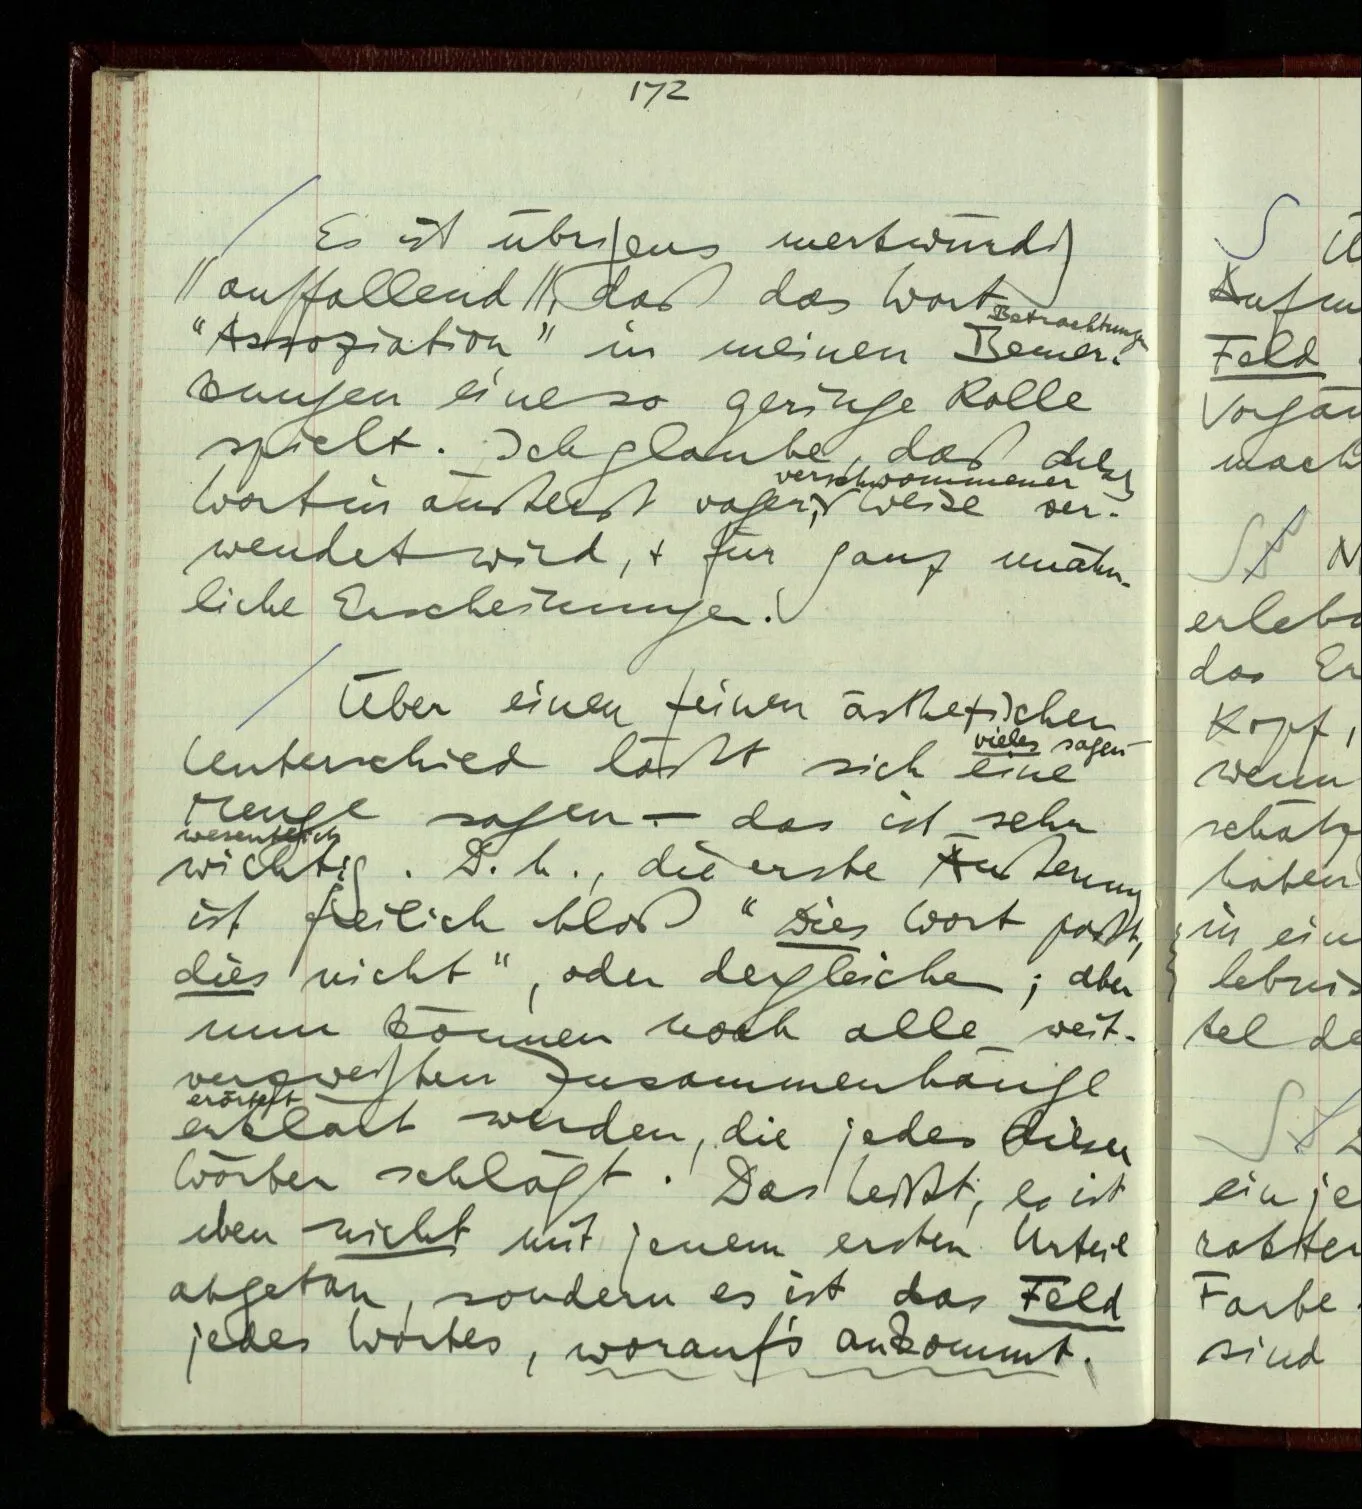 172
Es ist übrigens merkwürdig
//auffallend//, daß das Wort
Betrachtungen
"Assoziation" in meinen Bemer-
kungen eine so geringe Rolle
spielt. Ich glaube, daß dieses
verschwommener
Wort in äußerst vager, Weise ver-
wendet wird, + für ganz unähn-
liche Erscheinungen.
Über einen feinen ästhetischen
vieles sagen
Unterschied läßt sich eine
Menge sagen — das ist sehr
wesentlich
wichtig. D.h., die erste Äußerung
ist freilich bloß "Dies Wort paßt,
dies nicht", oder dergleichen; aber
nun können noch alle weit-
verzweigten Zusammenhänge
erörtert
erklärt werden, die jedes dieser
Wörter schlägt. Das heißt, es ist
eben nicht mit jenem ersten Urteil
abgetan, sondern es ist das Feld
jedes Wortes, worauf's ankommt.
Feld
erleb
das Er
Kopf,
wenn
schätz
haben
in ein
lebnis
tel de
ein je
Farbe
sind